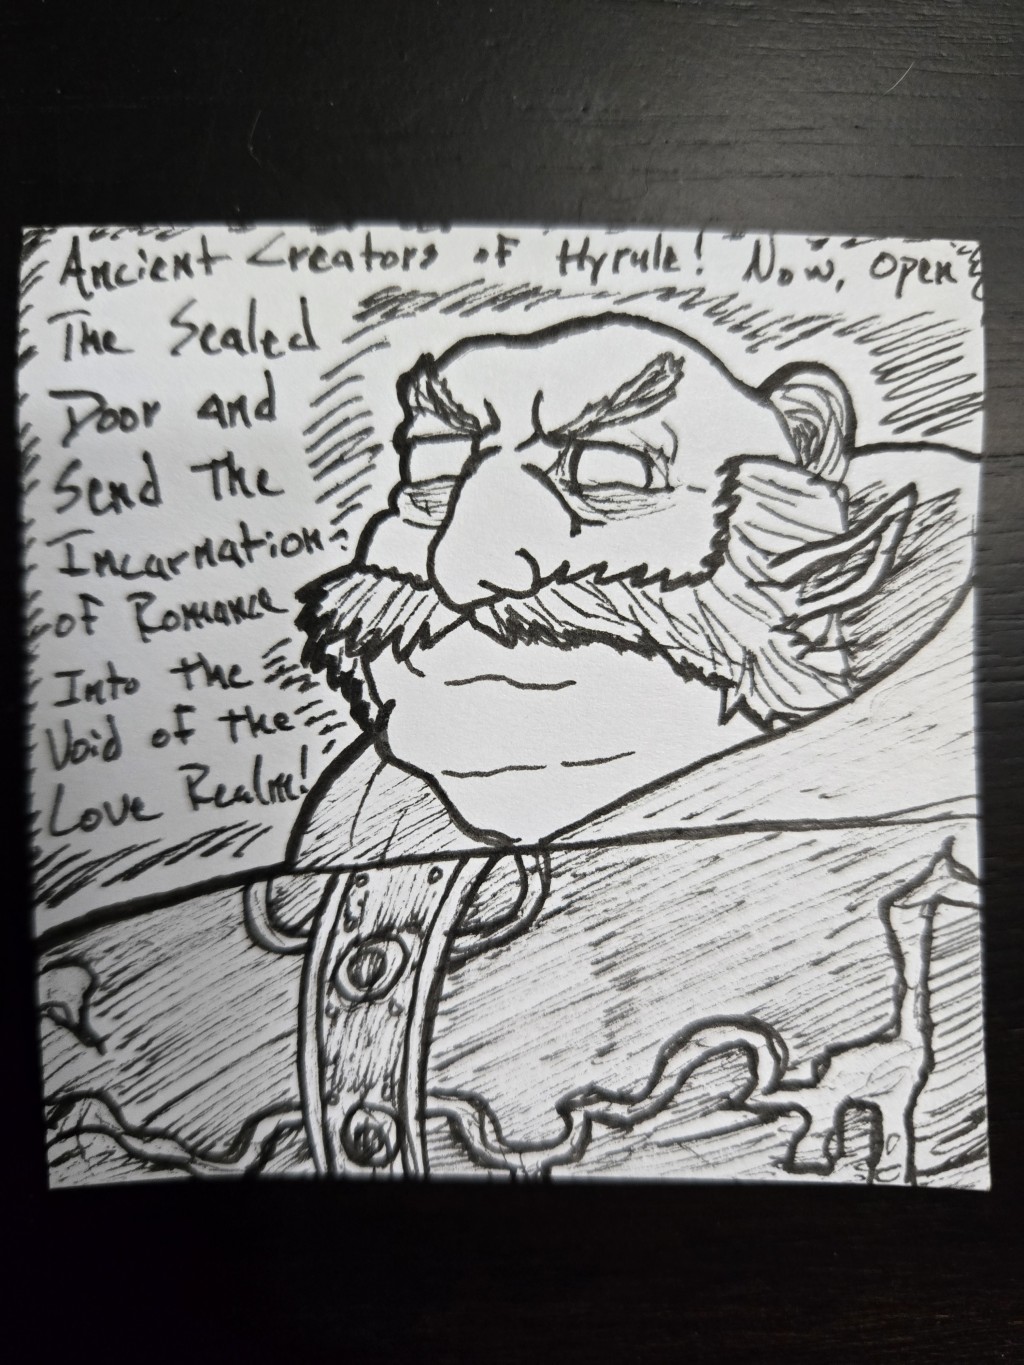 Ancient Creators of Hyrule! Now, open
The Sealed
Door and
Send The
Incarnation
of Romance
Into the
Void of the
Love Realm!